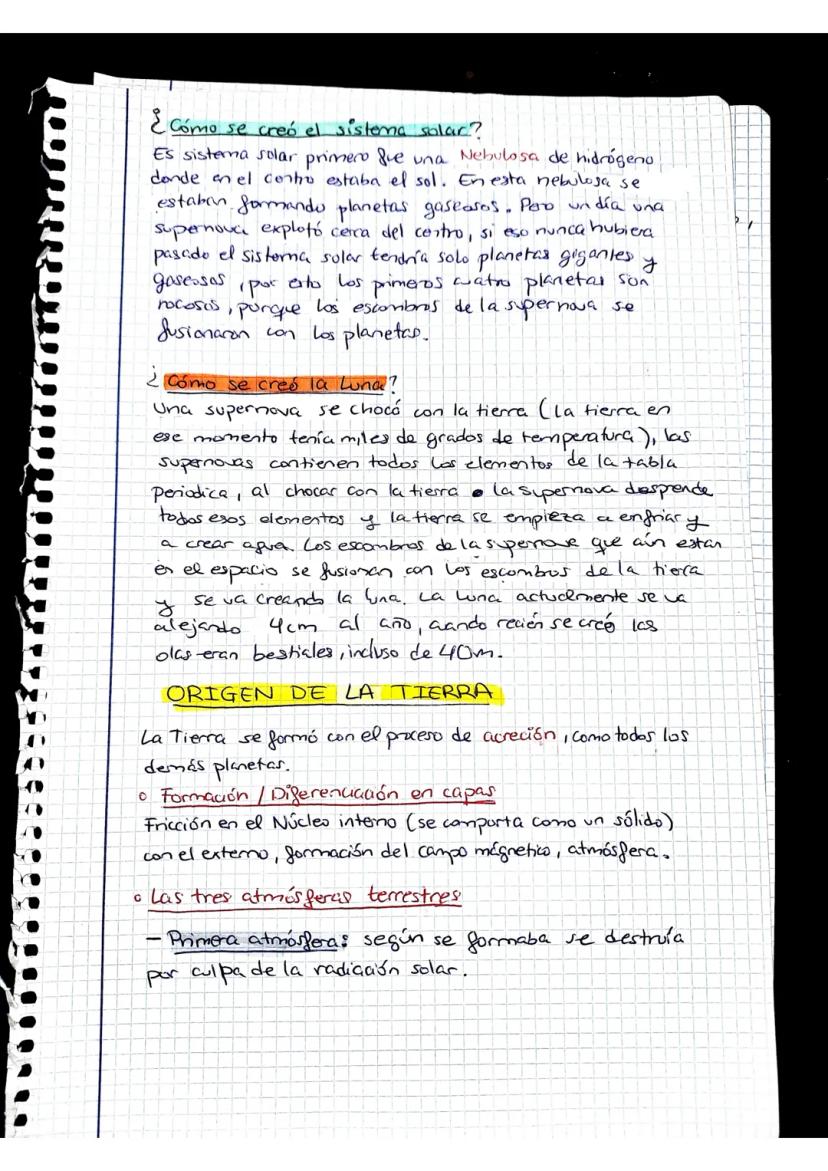 ¿Cómo se creó el sistema solar?
Es sistema solar primero fue una Nebulosa de hidrógeno
donde en el centro estaba el sol. En esta nebulosa se
estaban formando planetas gaseosos. Pero un día una
supernova explotó cerca del centro, si eso nunca hubiera
pasado el sistema solar tendría solo planetas gigantes y
gaseosos, por esto los primeros cuatro planetas son
rocosos, porque los escombros de la supernova se
fusionaron con los planetas.
¿Cómo se creó la Luna?
Una supernova se chocó con la tierra (la tierra en
ese momento tenía miles de grados de temperatura), las
supernovas contienen todos los elementos de la tabla
periodica, al chocar con la tierra la supernova desprende
todos esos elementos y la tierra se empieza a enfriar y
a crear agua. Los escombros de la supernova que aún estan
en el espacio se fusionan con los escombros de la tierra
y se va creando la luna. La Luna actualmente se va
alejando 4cm al año, cuando recién se creó las
olas eran bestiales, incluso de 40m.
ORIGEN DE LA TIERRA
La Tierra se formó con el proceso de acreción, como todos los
demás planetas.
o Formación / Diferenciación en capas
Fricción en el Núcleo interno (se comporta como un sólido)
con el externo, formación del campo mágnetico, atmósfera.
o Las tres atmósferas terrestres
- Primera atmósfera: según se formaba se destruía
por culpa de la radiación solar.